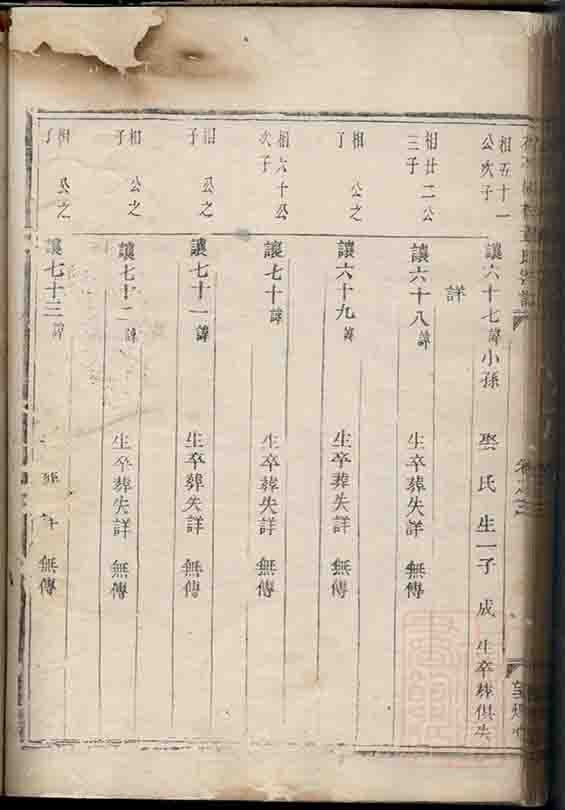 相五十一
公次子
讓六十七諱小孫 娶 氏 生一子 成 生卒葬俱失
詳
相廿二公
三子
讓六十八諱 生卒葬失詳 無傳
相 公之
子
讓六十九諱 生卒葬失詳 無傳
相六十公
次子
讓七十諱 生卒葬失詳 無傳
相 公之
子
讓七十一諱 生卒葬失詳 無傳
相 公之
子
讓七十二諱 生卒葬失詳 無傳
相 公之
子
讓七十三諱 葬 詳 無傳